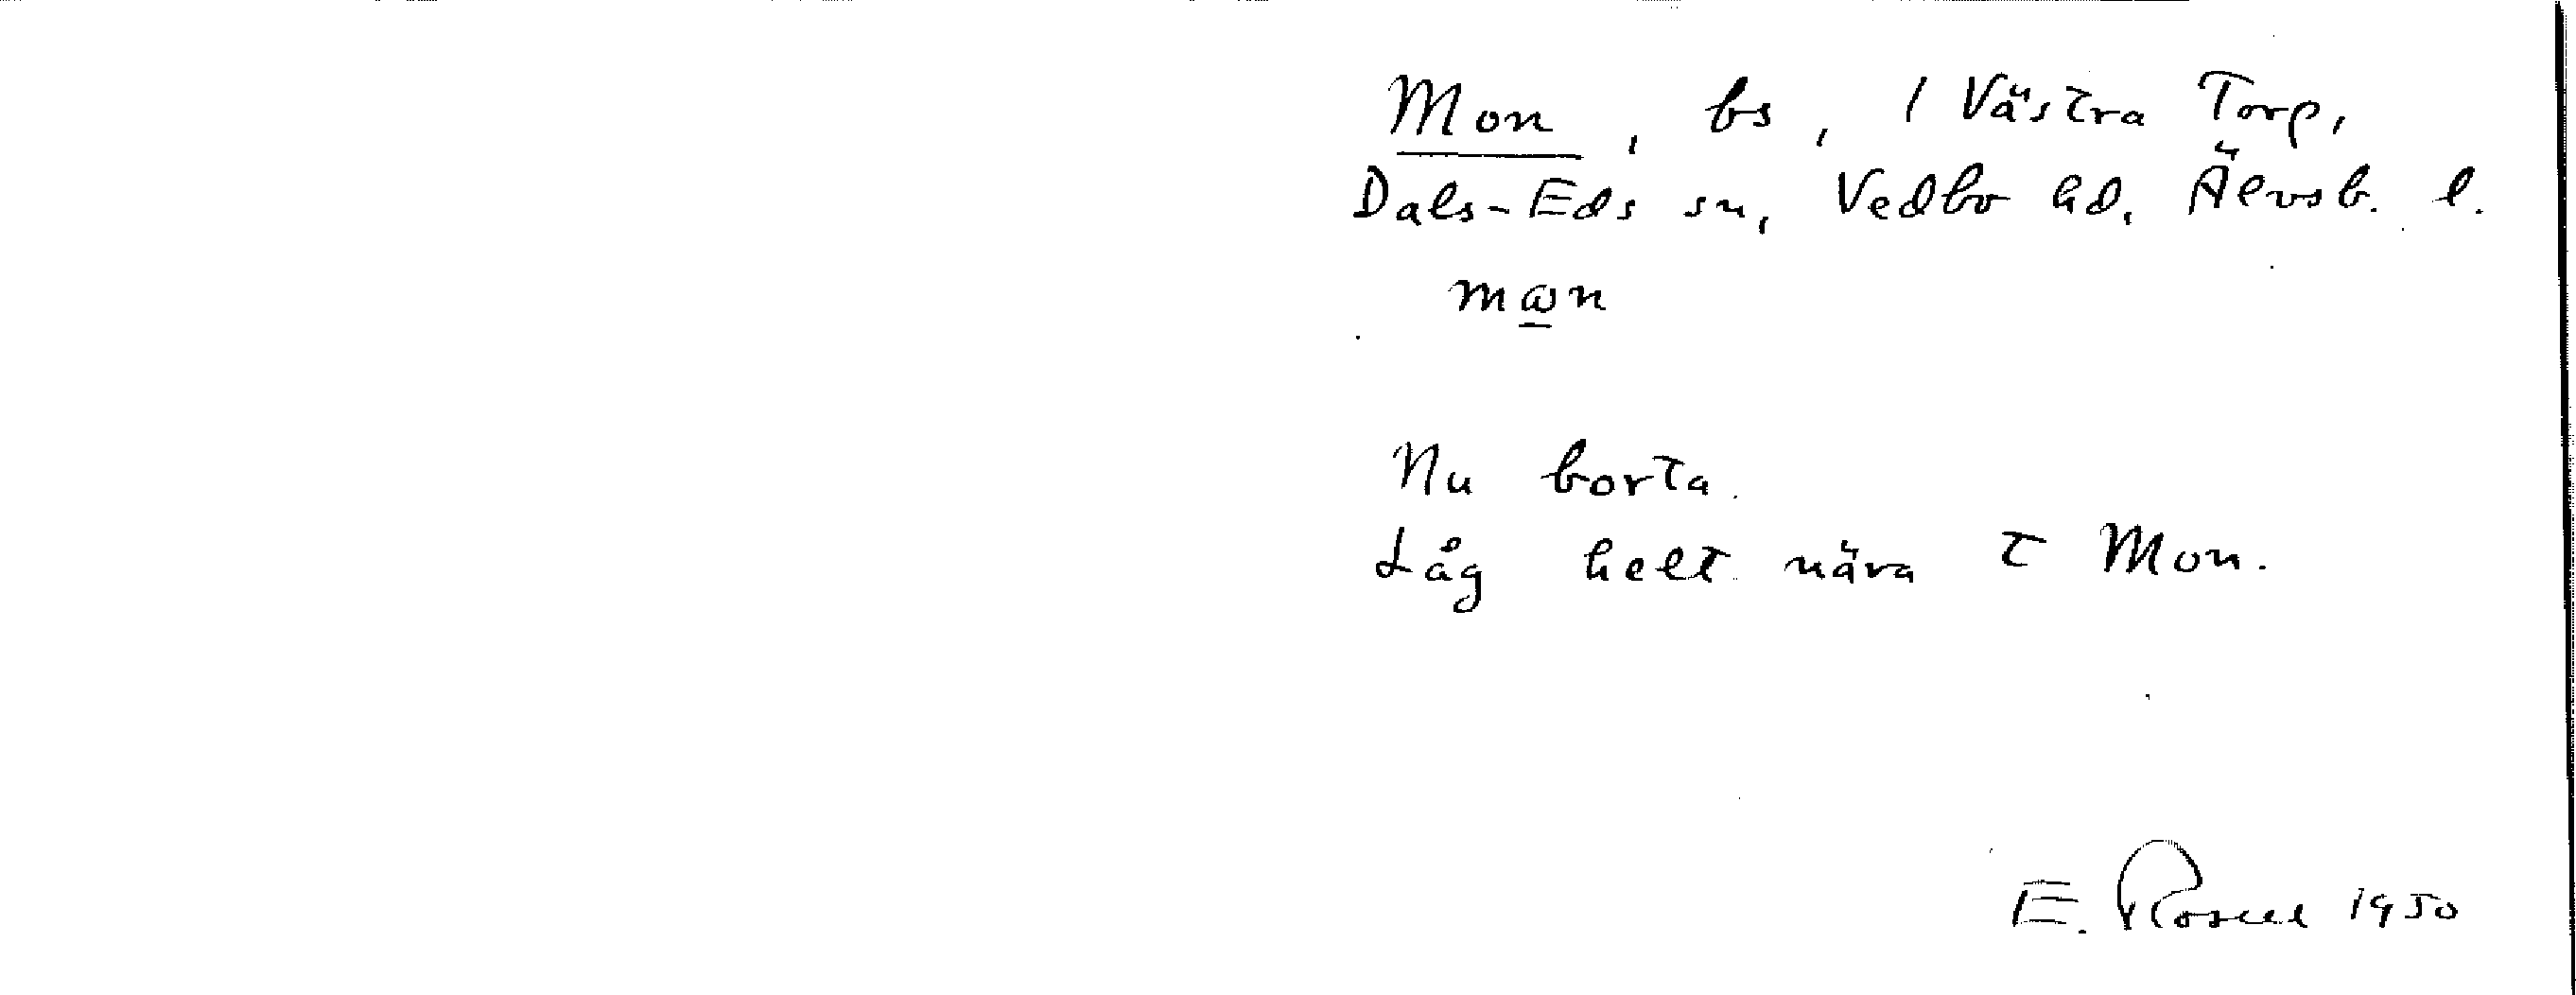 Mon, bs, / Västra Torp,
Dals-Eds sn, Vedbo hd, Älvsb. l.
Nu borta.
Låg helt nära t Mon.
E. 1950